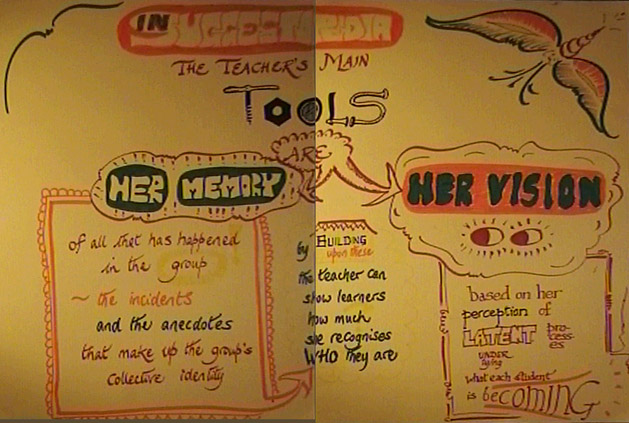 IN SUGGESTOPEDIA
THE TEACHER'S MAIN
TOOLS
ARE
HER MEMORY
of all that has happened
in the group
~ the incidents
and the anecdotes
that make up the group's
collective identity
by BUILDING
upon these
the teacher can
show learners
how much
she recognises
WHO they are
HER VISION
based on her
perception of
LATENT pro-
cess-
es
UNDER
lying
what each student
is becOMING